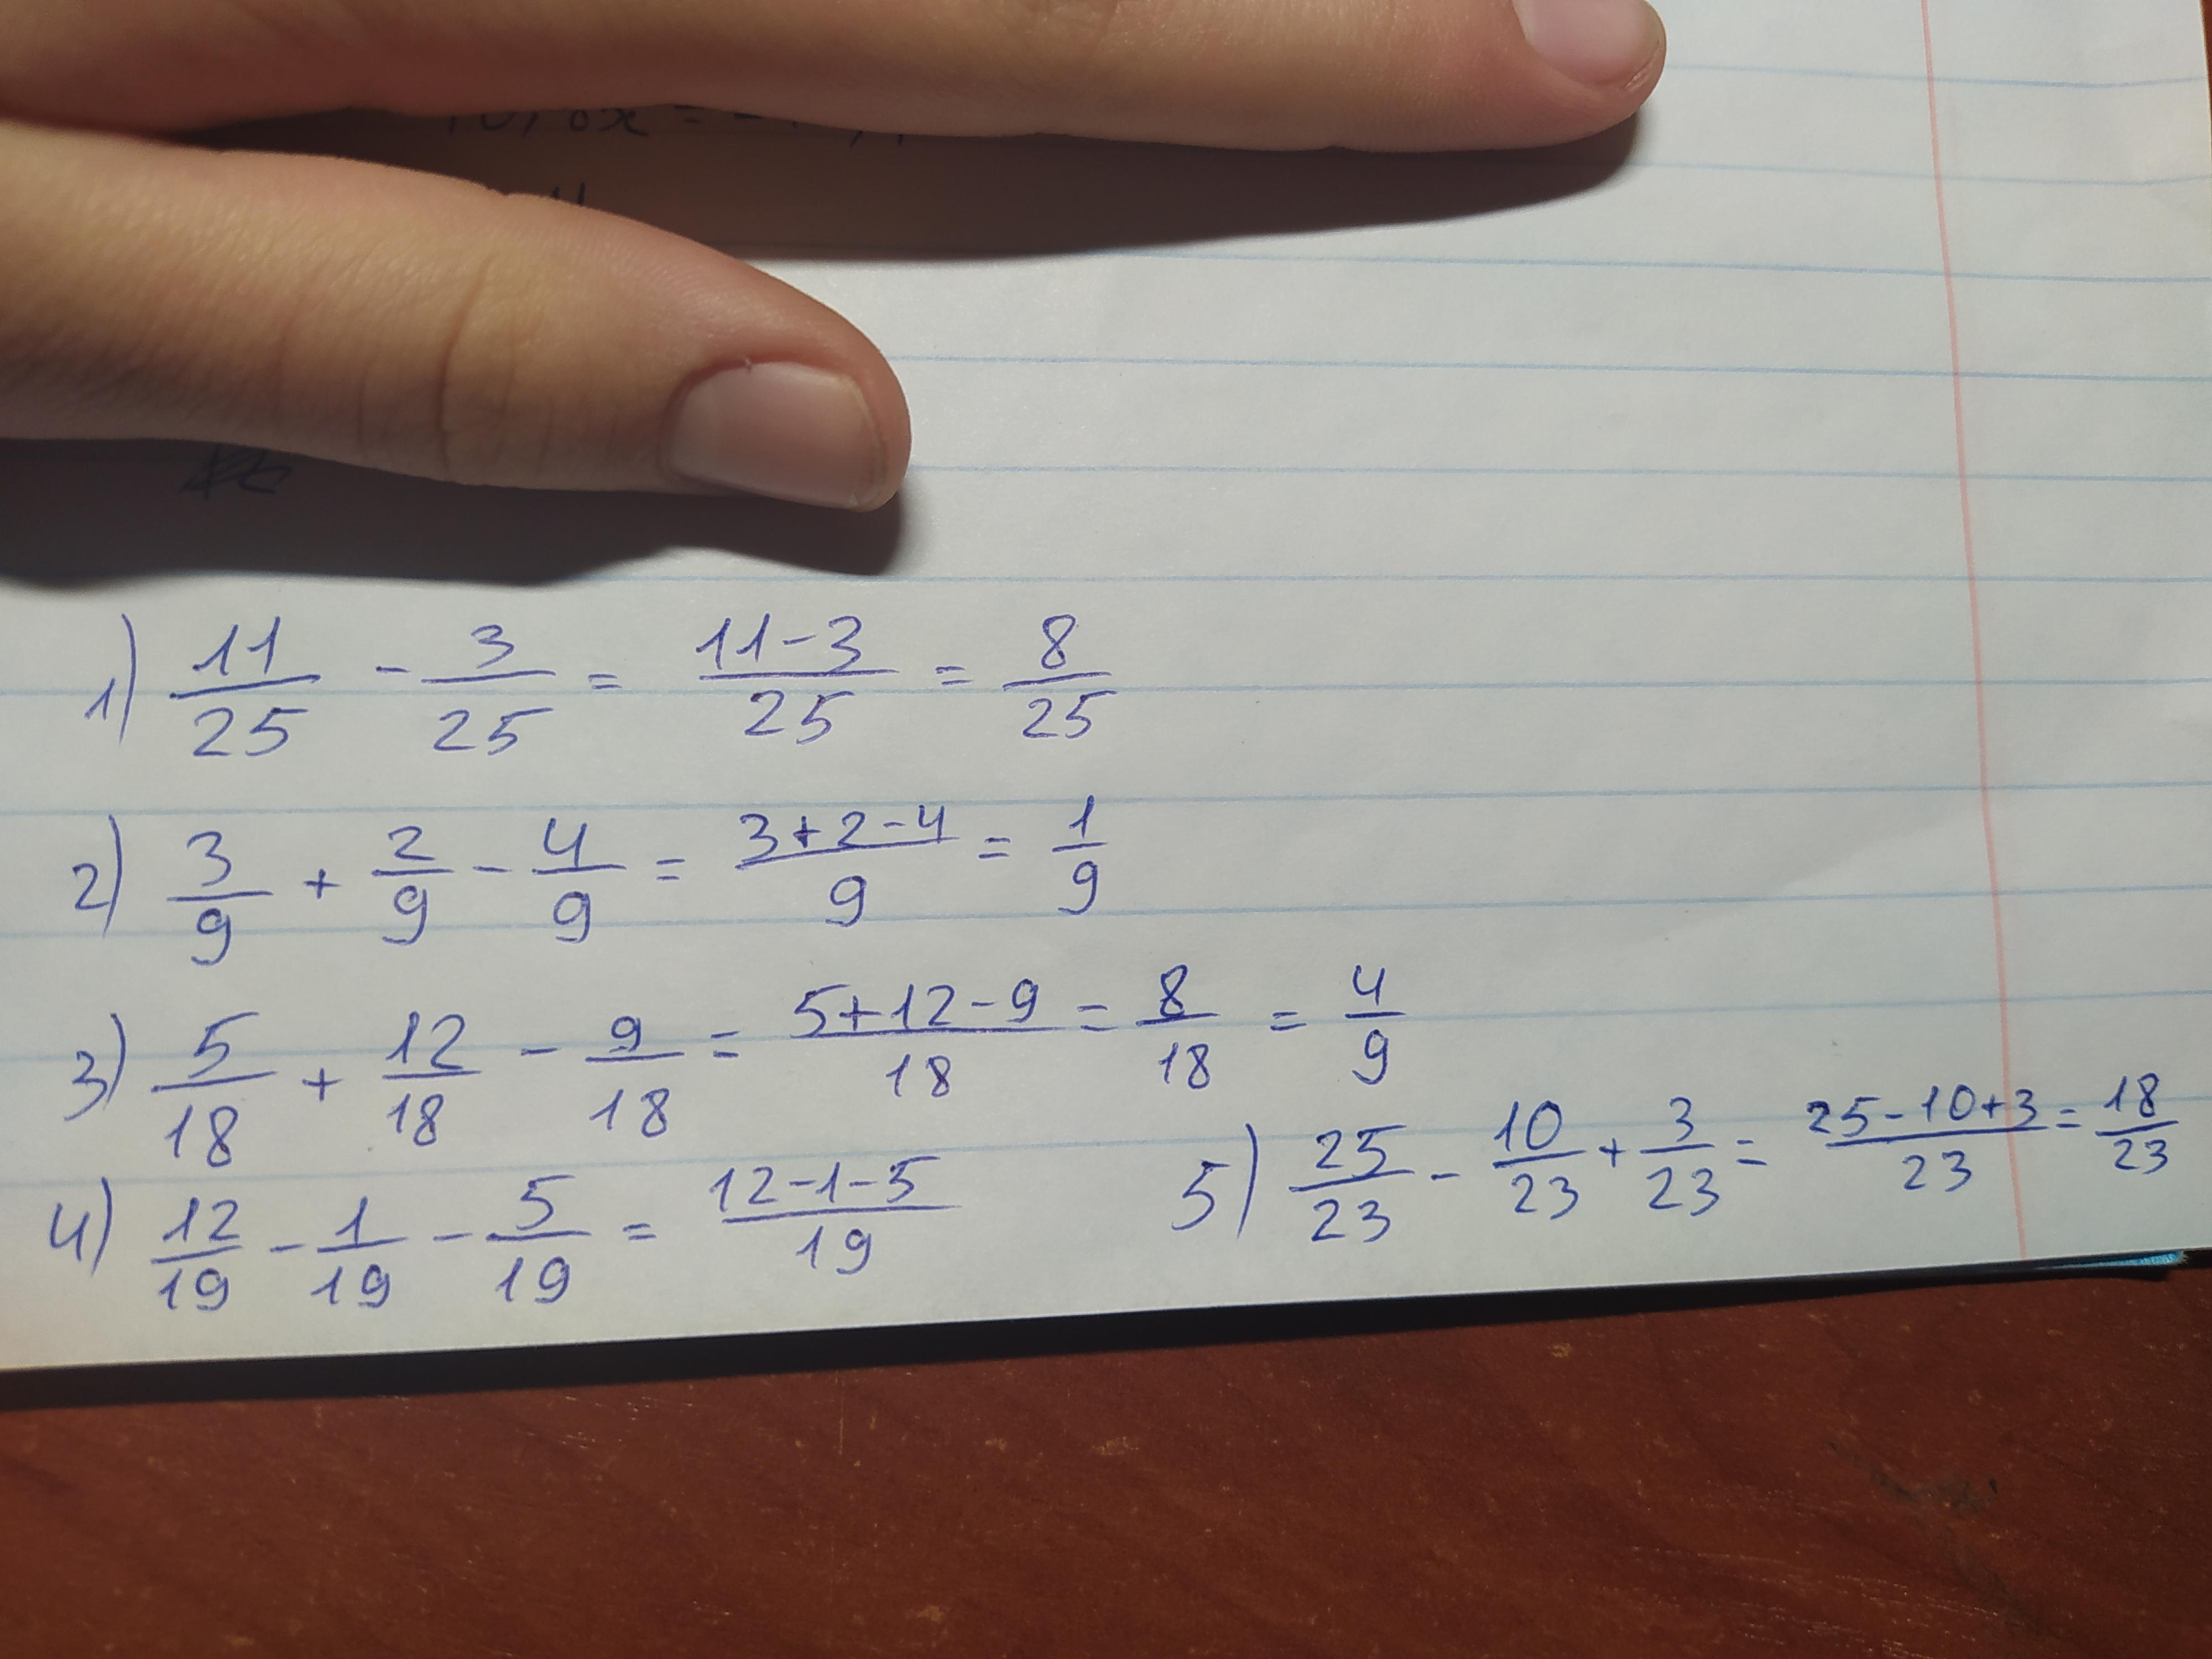 1) 11/25 - 3/25 = 11-3/25 = 8/25
2) 3/9 + 2/9 - 4/9 = 3+2-4/9 = 1/9
3) 5/18 + 12/18 - 9/18 = 5+12-9/18 = 8/18 = 4/9
4) 12/19 - 1/19 - 5/19 = 12-1-5/19
5) 25/23 - 10/23 + 3/23 = 25-10+3/23 = 18/23